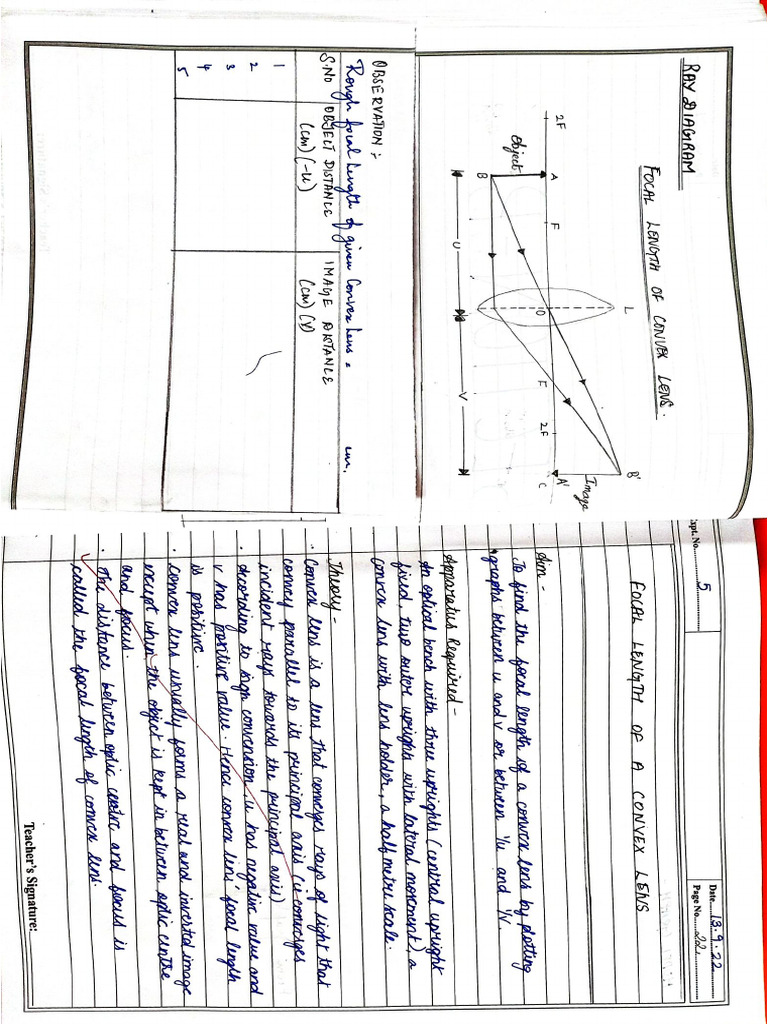 RAY DIAGRAM
FOCAL LENGTH OF CONVEX LENS.
L
B'
Image
2F
A
F
O
F
2F
A'
C
Object
B
U
V
OBSERVATION :-
Rough focal length of given Convex Lens = cm.
S.NO OBJECT DISTANCE IMAGE DISTANCE
(cm) (-u) (cm) (V)
1
2
3
4
5
Expt. No. 5
Date 13.9.22
Page No. 22
FOCAL LENGTH OF A CONVEX LENS
Aim -
To find the focal length of a convex lens by plotting
graphs between u and v or between 1/u and 1/v.
Apparatus Required -
An optical bench with three uprights (central upright
fixed, two outer uprights with lateral movement), a
convex lens with lens holder, a half metre scale.
Theory -
• Convex lens is a lens that converges rays of light that
convey parallel to its principal axis (i.e converges
incident rays towards the principal axis)
• According to sign convension, u has negative value and
v has positive value. Hence convex lens' focal length
is positive.
• Convex lens usually forms a real and inverted image
except when the object is kept in between optic centre
and focus.
• The distance between optic centre and focus is
called the focal length of convex lens.
Teacher's Signature: